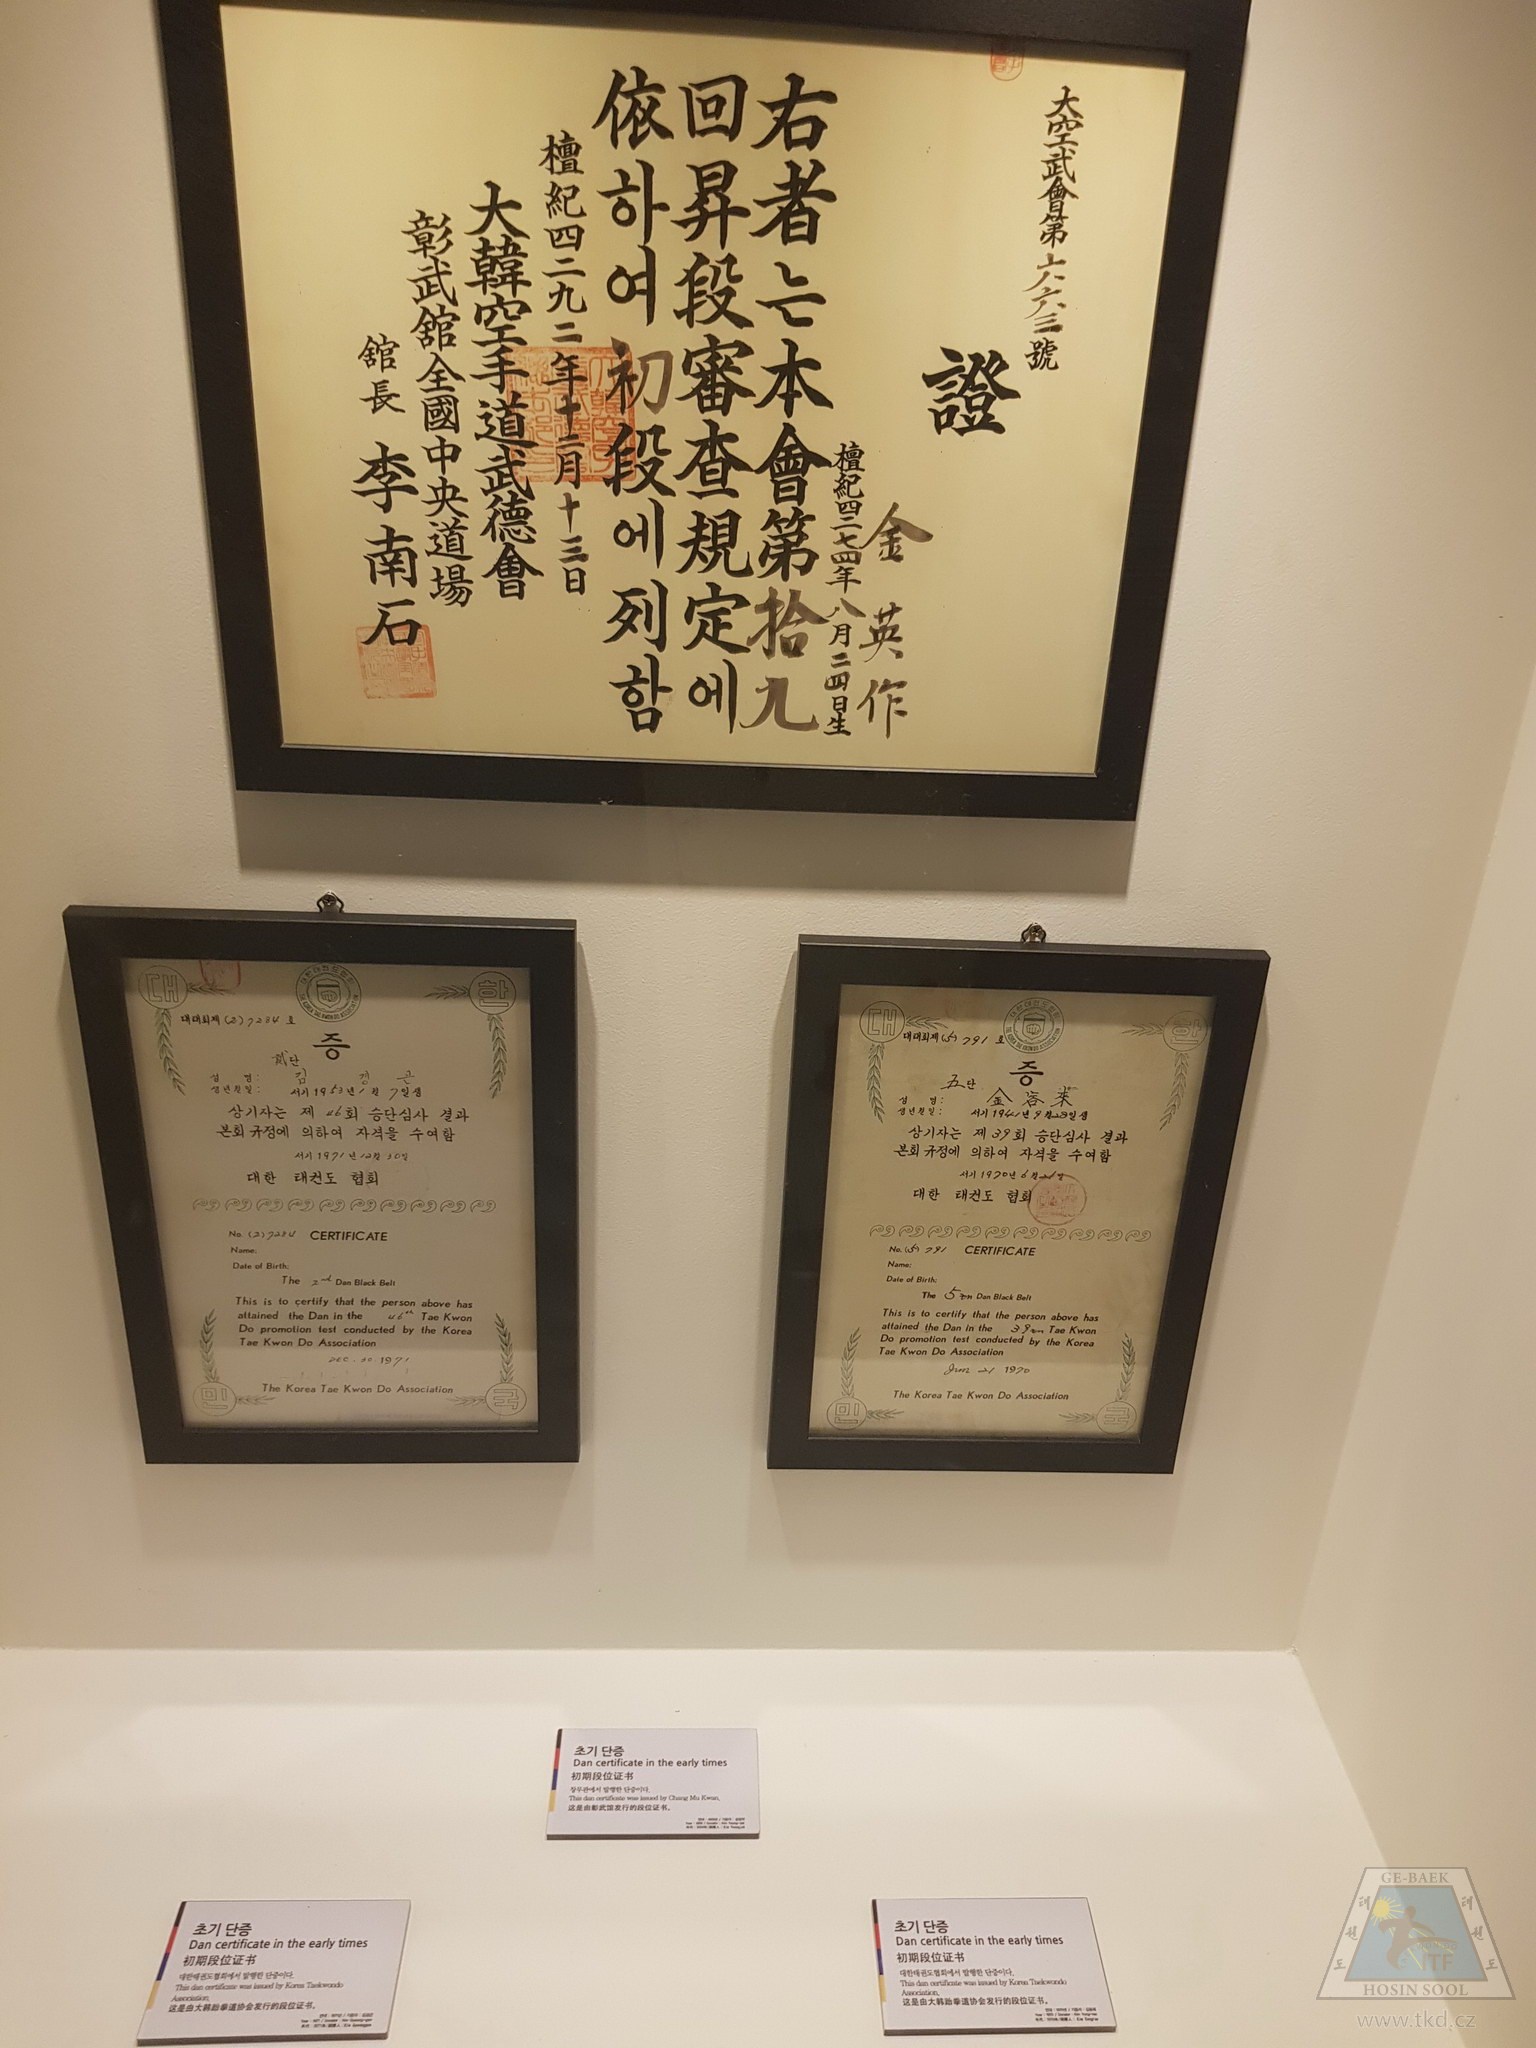 大空武會第六六三號
證
金英作
檀紀四二七四年八月二四日生
右者는本會第拾九
回昇段審查規定에
依하여初段에列함
檀紀四二九二年十二月十三日
大韓空手道武德會
彰武舘全國中央道場
舘長 李南石
대 한
대태회제 (2) 7234 호
증
단
성 명: 김 경
생년월일: 서기 1953년 1월 7일생
상기자는 제 46회 승단심사 결과
본회 규정에 의하여 자격을 수여함
서기 1971년 12월 30일
대한 태권도 협회
No. (2) 7234 CERTIFICATE
Name:
Date of Birth:
The 2nd Dan Black Belt
This is to certify that the person above has
attained the Dan in the 46th Tae Kwon
Do promotion test conducted by the Korea
Tae Kwon Do Association
Dec. 30. 1971
The Korea Tae Kwon Do Association
민 국
대 한
THE KOREA TAE KWON DO ASSOCIATION
대태회제 (5) 791 호
증
五단
성 명: 金容
생년월일: 서기 1941년 9월 23일생
상기자는 제 39회 승단심사 결과
본회 규정에 의하여 자격을 수여함
서기 1970년 6월 21일
대한 태권도 협회
No. (5) 791 CERTIFICATE
Name:
Date of Birth:
The 5 Dan Black Belt
This is to certify that the person above has
attained the Dan in the 39 Tae Kwon
Do promotion test conducted by the Korea
Tae Kwon Do Association
Jun 21 1970
The Korea Tae Kwon Do Association
민 국
초기 단증
Dan certificate in the early times
初期段位证书
창무관에서 발행한 단증이다.
This dan certificate was issued by Chang Mu Kwan.
这是由彰武馆发行的段位证书。
초기 단증
Dan certificate in the early times
初期段位证书
대한태권도협회에서 발행한 단증이다.
This dan certificate was issued by Korea Taekwondo
Association.
这是由大韩跆拳道协会发行的段位证书。
초기 단증
Dan certificate in the early times
初期段位证书
대한태권도협회에서 발행한 단증이다.
This dan certificate was issued by Korea Taekwondo
Association.
这是由大韩跆拳道协会发行的段位证书。
GE-BAEK
태권도
태권도
ITF
HOSIN SOOL
www.tkd.cz